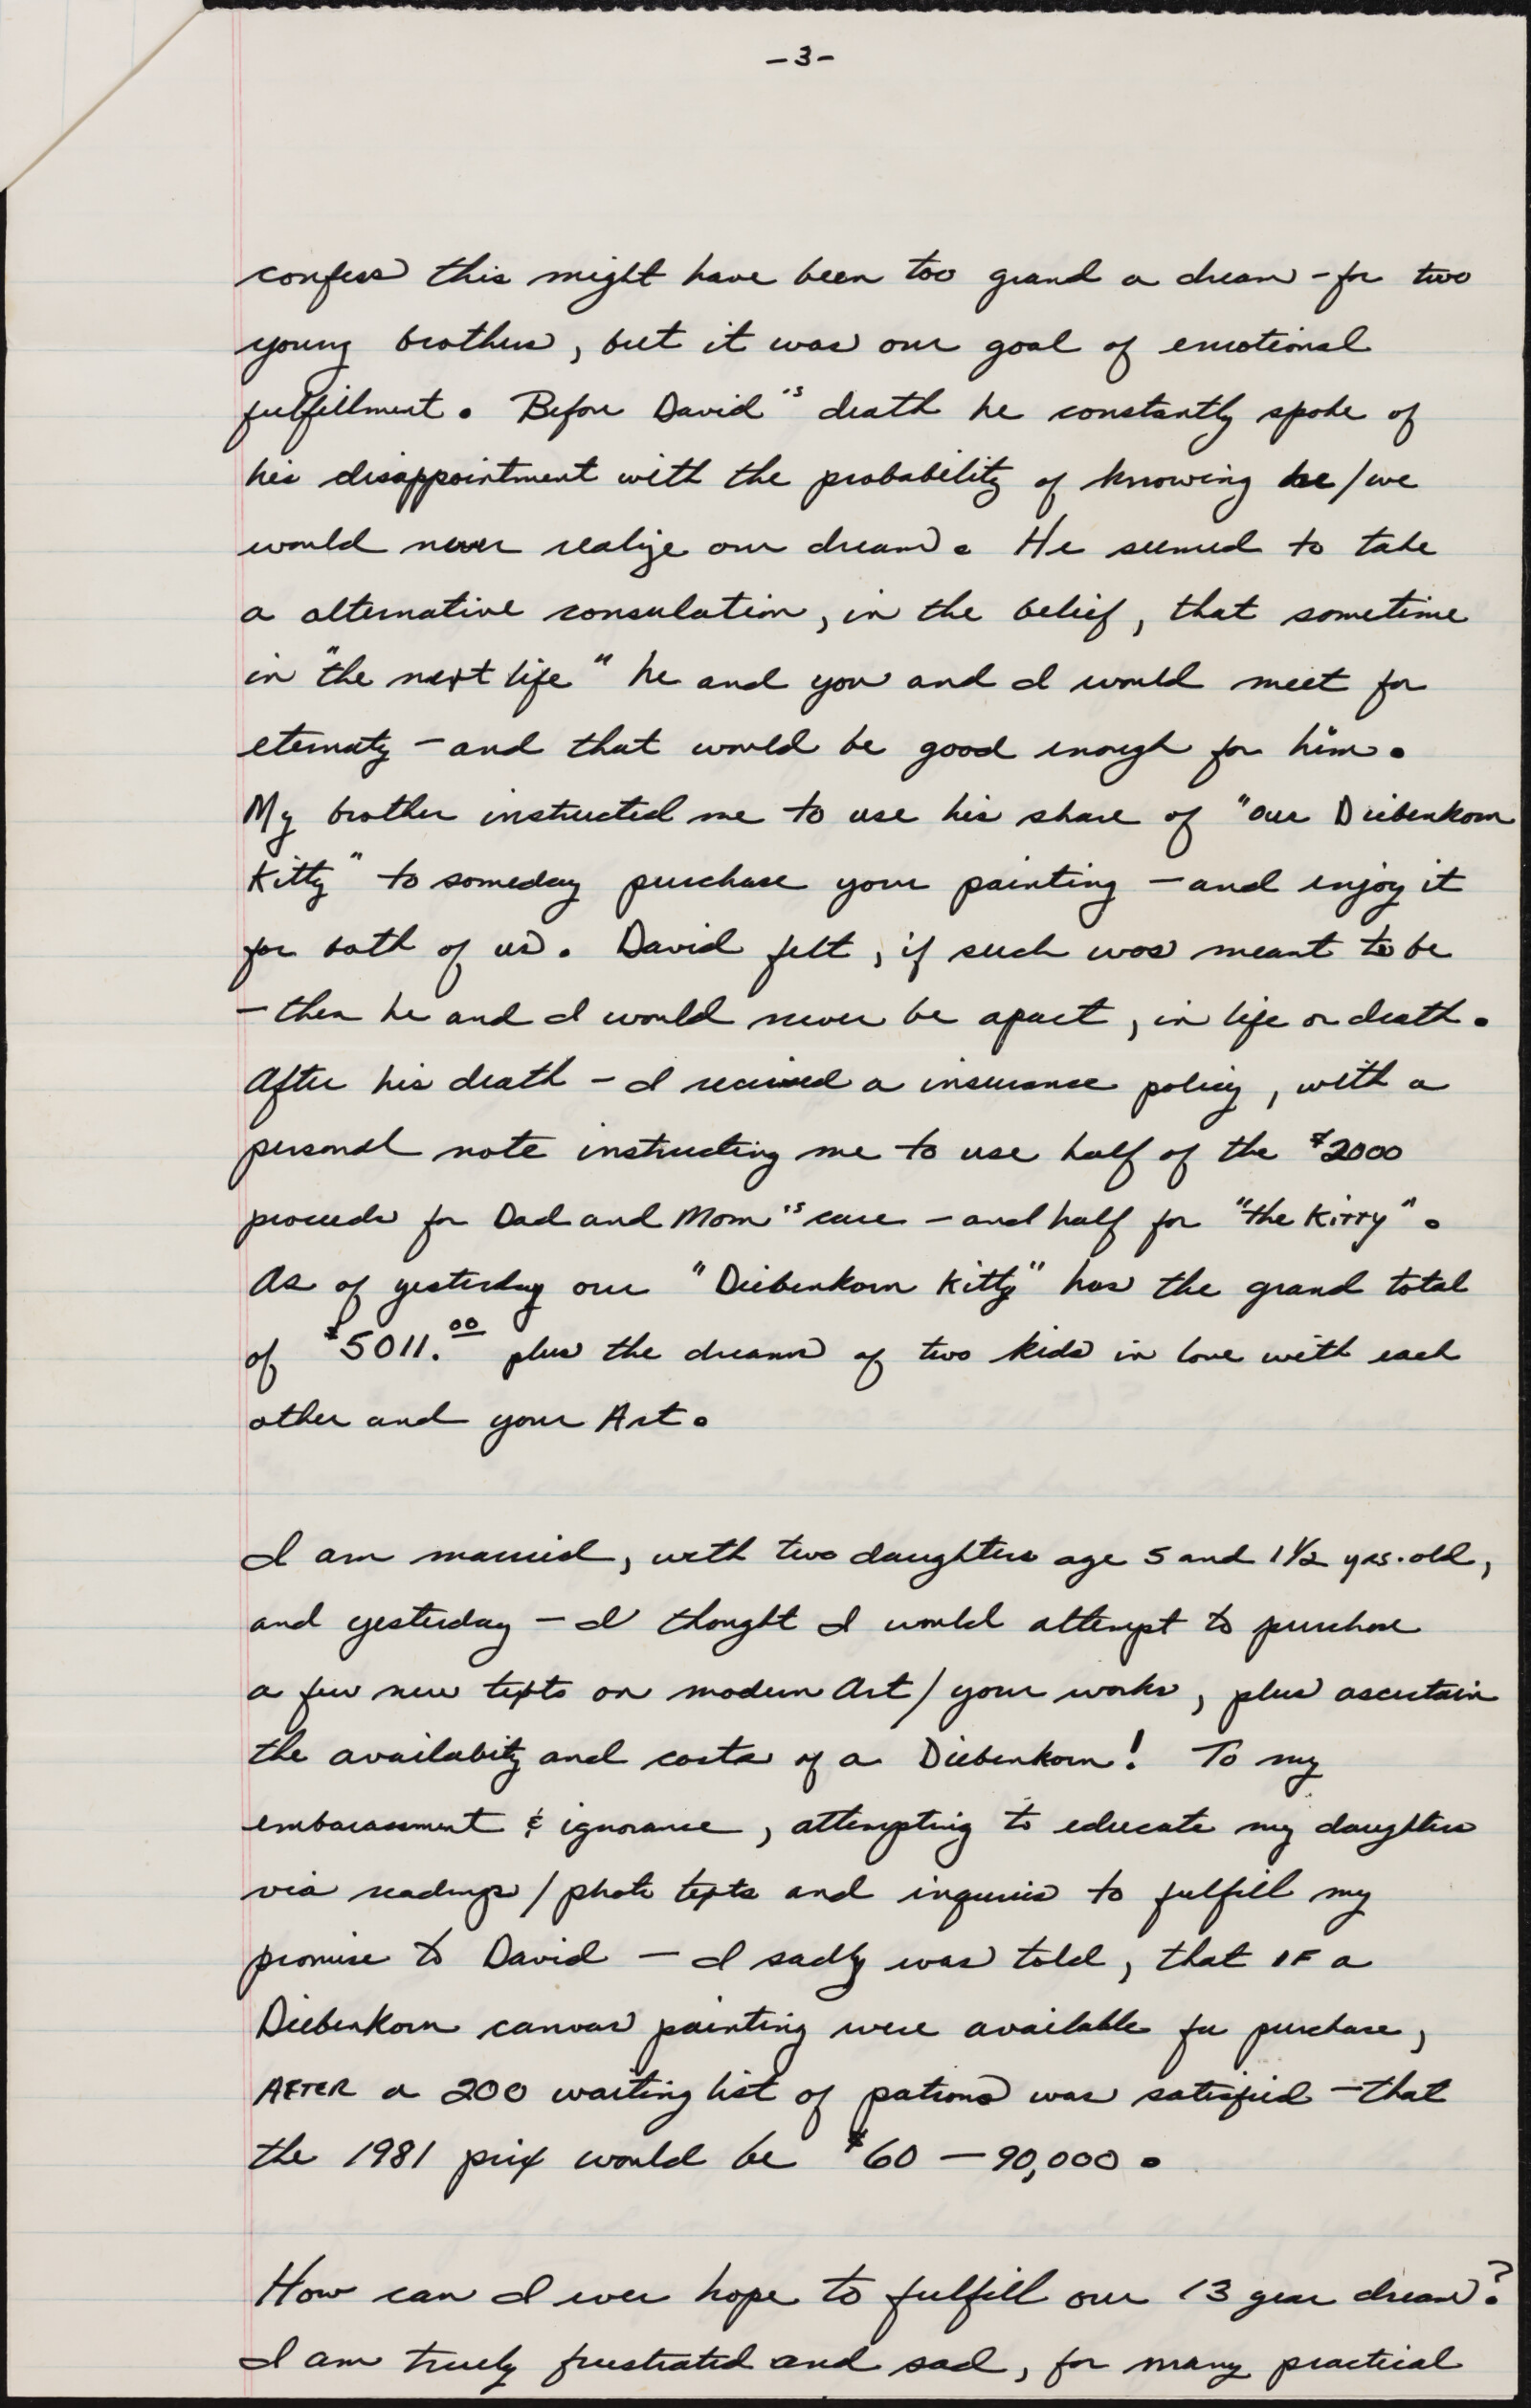 -3-
confess this might have been too grand a dream - for two
young brothers, but it was our goal of emotional
fulfillment. Before David's death he constantly spoke of
his disappointment with the probability of knowing he/we
would never realize our dream. He seemed to take
a alternative consulation, in the belief, that sometime
in "the next life" he and you and I would meet for
eternaty - and that would be good enough for him.
My brother instructed me to use his share of "our Diebenkorn
Kitty" to someday purchase your painting - and enjoy it
for both of us. David felt, if such was meant to be
- then he and I would never be apart, in life or death.
After his death - I received a insurance policy, with a
personal note instructing me to use half of the $2000
proceeds for Dad and Mom's care - and half for "the Kitty".
As of yesterday our "Diebenkorn Kitty" has the grand total
of $5011.00 plus the dreams of two kids in love with each
other and your Art.
I am married, with two daughters age 5 and 1½ yrs. old,
and yesterday - I thought I would attempt to purchase
a few new texts on modern Art/your works, plus ascertain
the availabity and costs of a Diebenkorn! To my
embarassment & ignorance, attempting to educate my daughters
via readings/photo texts and inquries to fulfill my
promise to David - I sadly was told, that IF a
Diebenkorn canvas painting were available for purchase,
AFTER a 200 waiting list of patrons was satisfied - that
the 1981 price would be $60 - 90,000.
How can I ever hope to fulfill our 13 year dream?
I am truely frustrated and sad, for many practical